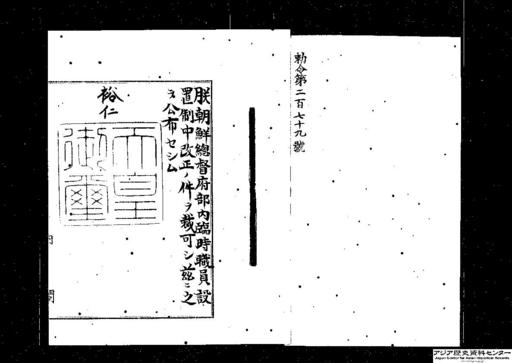 勅令第二百七十九號
朕朝鮮總督府部內臨時職員設
置制中改正ノ件ヲ裁可シ茲ニ之
ヲ公布セシム
裕仁
天皇
御璽
アジア歴史資料センター
Japan Center for Asian Historical Records